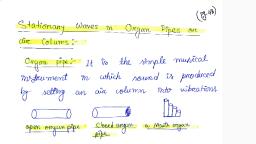 (Pg. 48)
Stationary Waves in Organ Pipes or
air Colums:-
Organ pipe:- It is the simple musical
instrument in which sound is produced
by setting an air column into vibrations
open organ pipe Closed organ pipe a Mouth organ